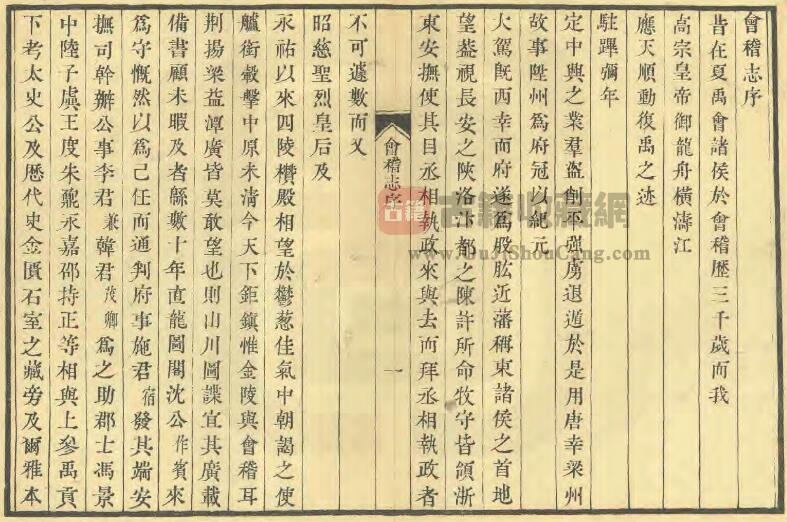 會稽志序
昔在夏禹會諸侯於會稽歷三千歲而我
高宗皇帝御龍舟橫濤江
應天順動復禹之迹
駐蹕彌年
定中興之業羣盜削平强虜退遁於是用唐幸梁州
故事陞州爲府冠以紀元
大駕旣西幸而府遂爲股肱近藩稱東諸侯之首地
望葢視長安之陝洛汴都之陳許所命牧守皆領浙
東安撫使其自丞相執政來與去而拜丞相執政者
會稽志序
一
不可遽數而又
昭慈聖烈皇后及
永祐以來四陵欑殿相望於鬱葱佳氣中朝謁之使
艫銜轂擊中原未淸今天下鉅鎭惟金陵與會稽耳
荆揚梁益潭廣皆莫敢望也則山川圖諜宜其廣載
備書顧未暇及者緜數十年直龍圖閣沈公作賓來
爲守慨然以爲己任而通判府事施君宿發其端安
撫司幹辦公事李君兼韓君茂卿爲之助郡士馮景
中陸子虡王度朱鼐永嘉邵持正等相與上參禹貢
下考太史公及歷代史金匱石室之藏旁及爾雅本
古籍
古籍收藏網
www.GuJiShouCang.com